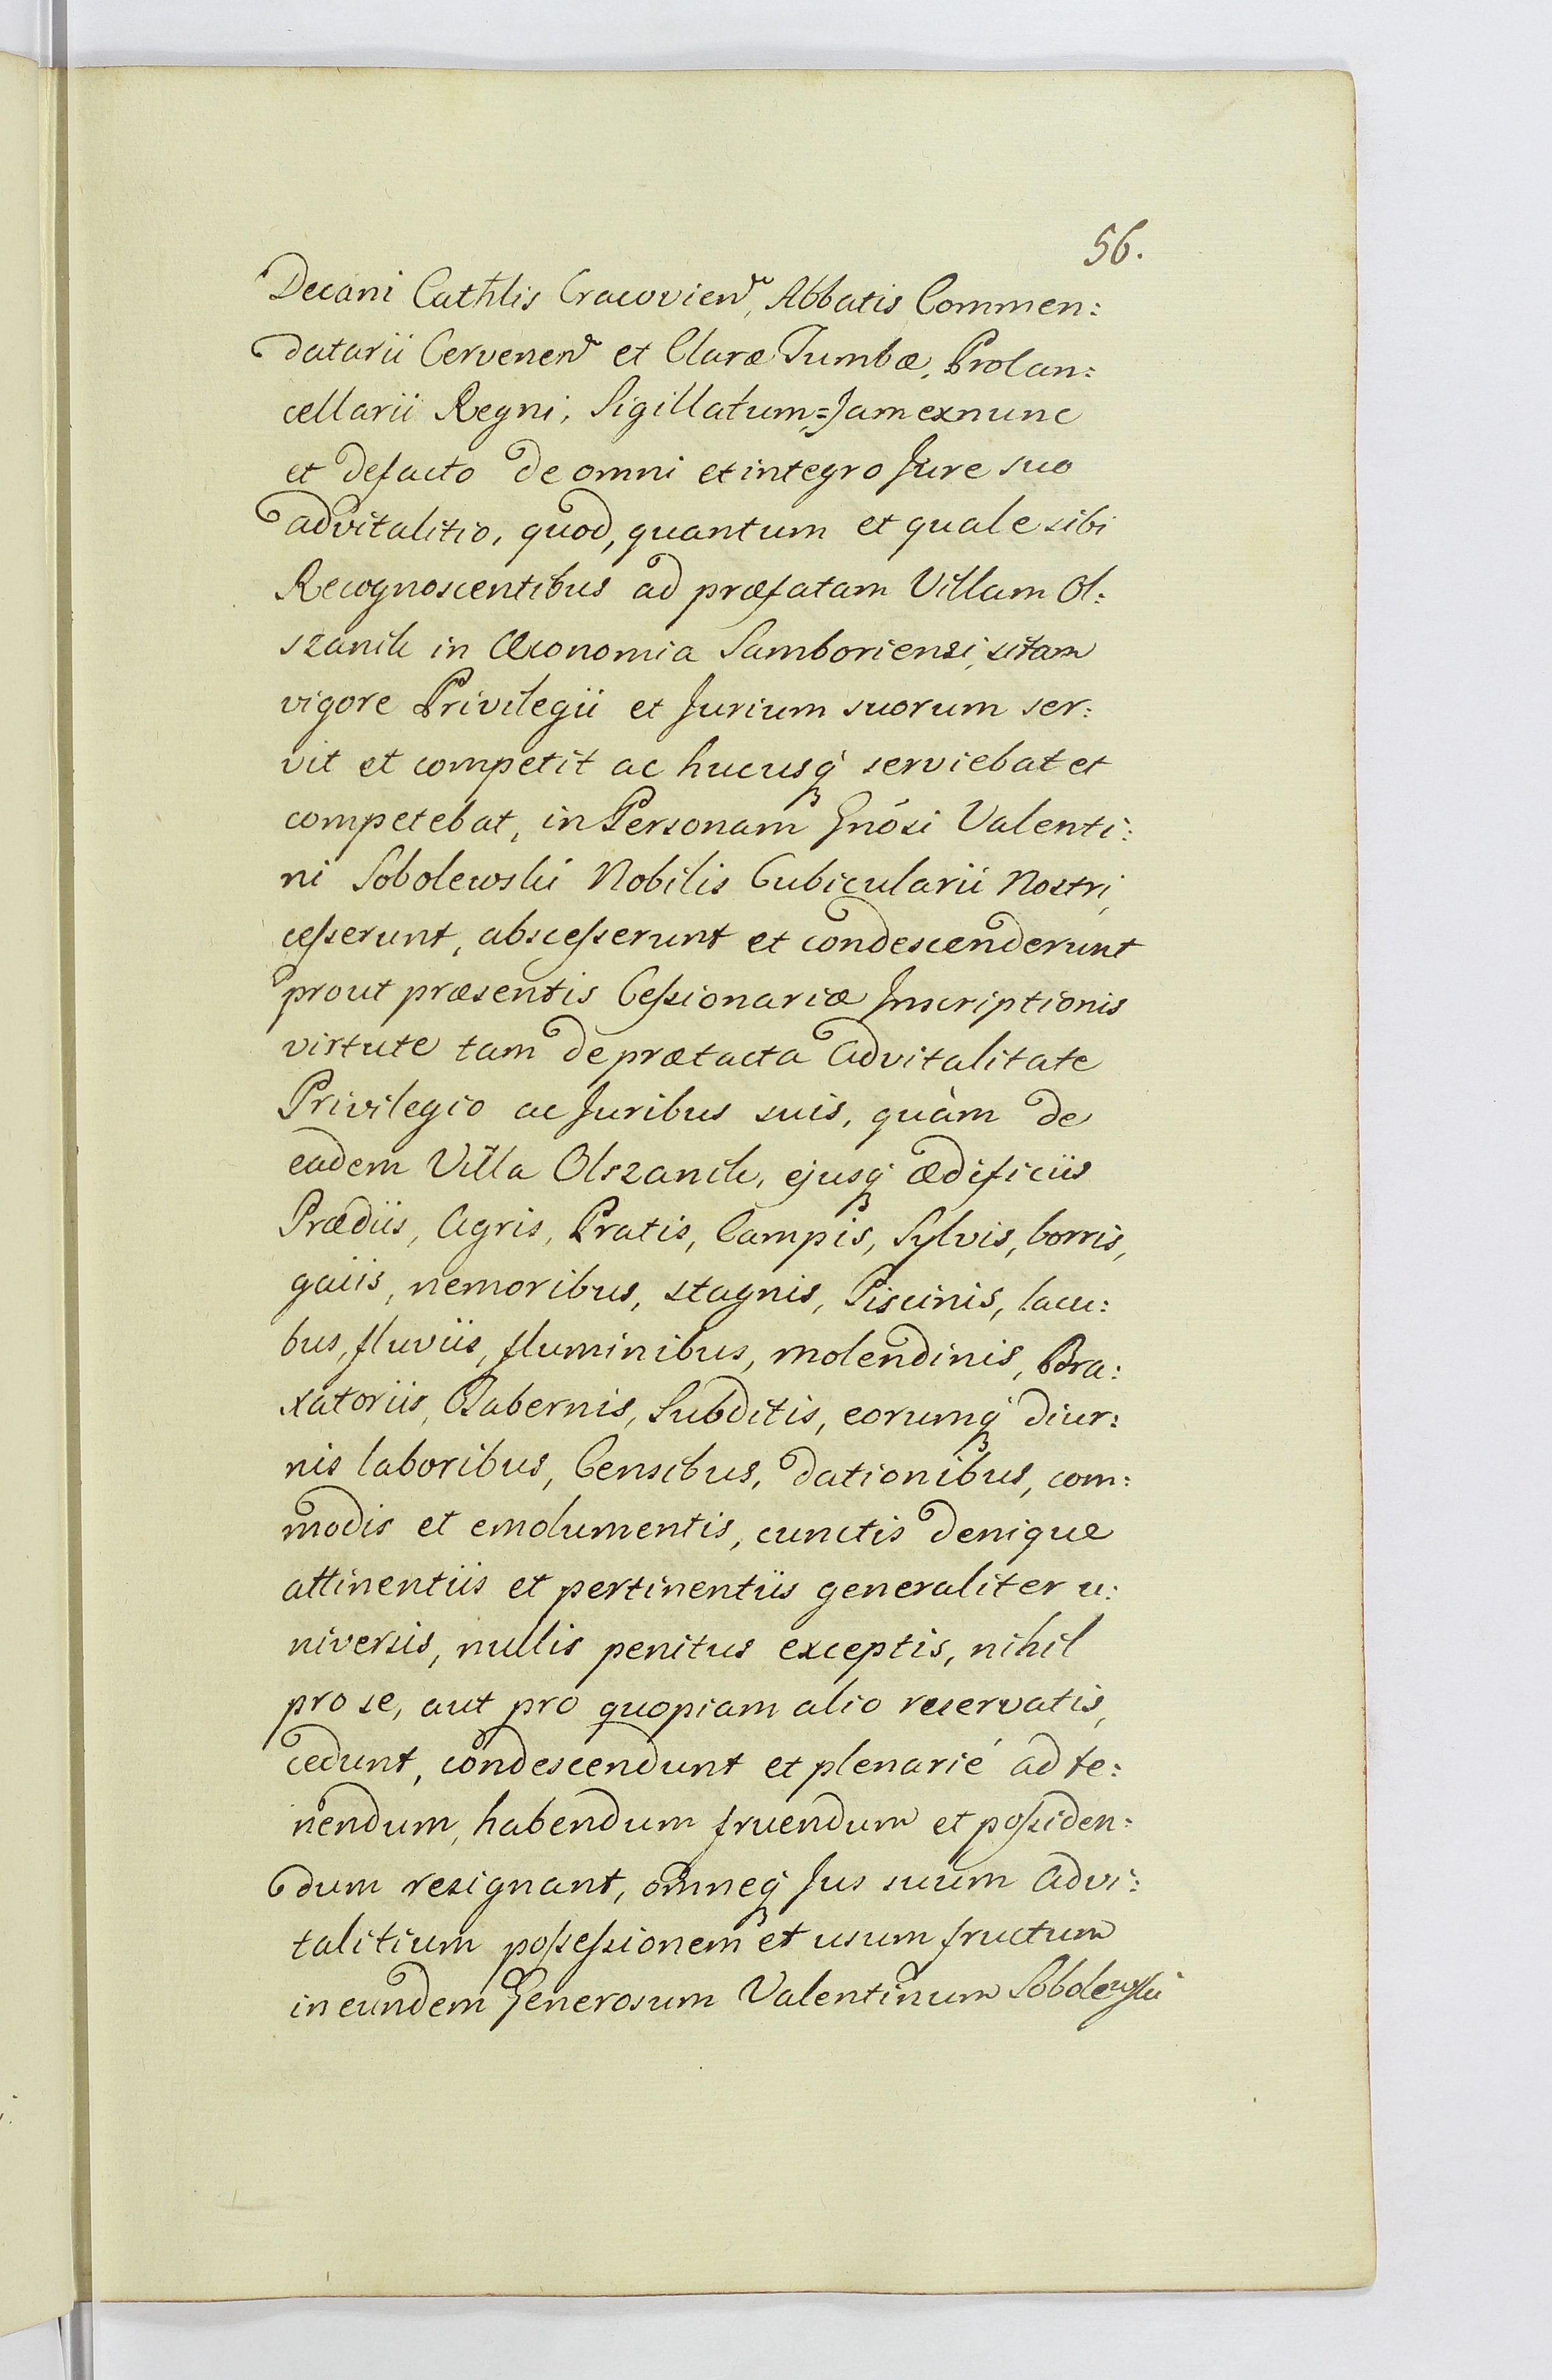 56.
Decani Cathlis Cracovien, Abbatis Commen:
datarii Cervenen et Claræ Tumbæ, Procan:
cellarii Regni, Sigillatum=Jam exnunc
et defacto de omni et integro Jure suo
advitalitio, quod, quantum et quale sibi
Recognoscentibus ad præfatam Villam Ol:
szanik in Œconomia Samboriensi, sitam
vigore Privilegii et Jurium suorum ser:
vit et competit ac hucusq serviebat et
competebat, in Personam Gnósi Valenti:
ni Sobolewski Nobilis Cubicularii Nostri,
cesserunt, abscesserunt et condescenderunt
prout præsentis Cessionariæ Inscriptionis
virtute tam de prætacta Advitalitate
Privilegio ac Juribus suis, quàm de
eadem Villa Olszanik, ejusq ædificiis
Prædiis, Agris, Pratis, Campis, Sylvis, borris,
gaiis, nemoribus, stagnis, Piscinis, lacu:
bus, fluviis, fluminibus, molendinis, Bra:
xatoriis, Tabernis, Subditis, eorumq diur:
nis laboribus, Censibus, dationibus, com:
modis et emolumentis, cunctis denique
attinentiis et pertinentiis generaliter u:
niversis, nullis penitus exceptis, nihil
pro se, aut pro quopiam alio reservatis,
cedunt, condescendunt et plenarié ad te:
nendum, habendum fruendum et possiden:
dum resignant, omneq Jus suum Advi:
talitium possessionem et usum fructum
in eundem Generosum Valentinum Sobolewski